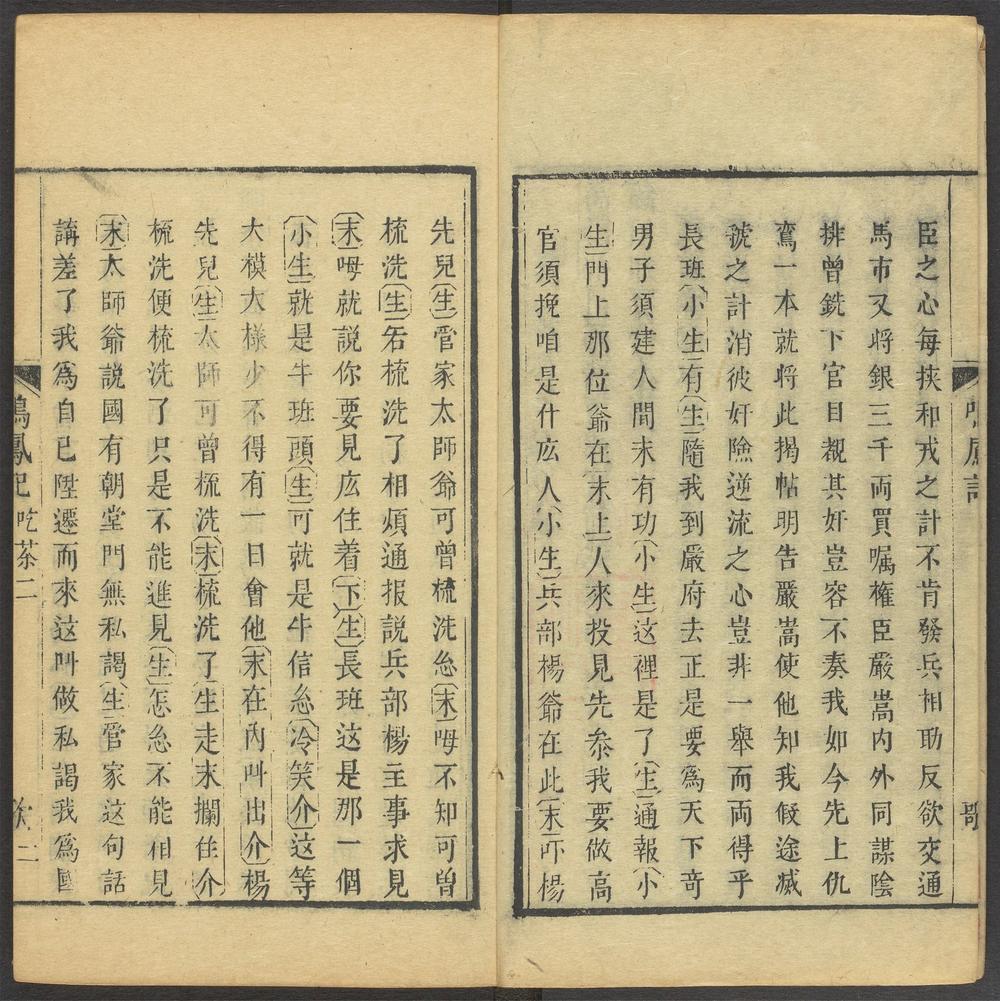 臣之心每挟和戎之計不肯發兵相助反欲交通
馬市又將銀三千両買嘱権臣嚴嵩内外同謀陰
排曾銑下官目覩其奸豈容不奏我如今先上仇
鸞一本就将此揭帖明告嚴嵩使他知我假途滅
虢之計消彼奸險逆流之心豈非一舉而両得乎
長班小生有生隨我到嚴府去正是要爲天下竒
男子須建人間未有功小生这裡是了生通報小
生門上那位爺在末上人來投見先叅我要做高
官須挽咱是什庅人小生兵部楊爺在此末吓楊
鳴鳳記 吃茶二
先兒生管家太師爺可曾梳洗怂末呣不知可曽
梳洗生若梳洗了相煩通报説兵部楊主事求見
末呣就説你要見庅住着下生長班这是那一個
小生就是牛班頭生可就是牛信怂冷笑介这等
大模大樣少不得有一日會他末在內叫出介楊
先兒生太師可曾梳洗末梳洗了生走末攔住介
梳洗便梳洗了只是不能進見生怎怂不能相見
末太師爺説國有朝堂門無私謁生管家这句話
講差了我爲自已陞遷而來这叫做私謁我爲國